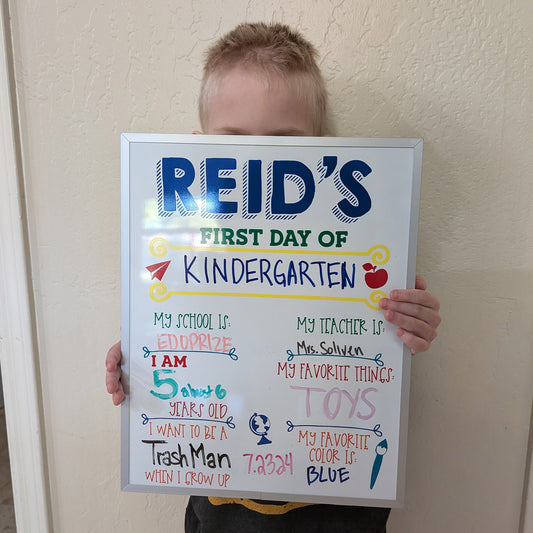 REID'S
FIRST DAY OF
KINDERGARTEN
MY SCHOOL IS:
EDUPRIZE
I AM
5 about 6
YEARS OLD
I WANT TO BE A
Trash Man
WHEN I GROW UP
7.23.24
MY TEACHER IS:
Mrs. Soliven
MY FAVORITE THINGS:
TOYS
MY FAVORITE
COLOR IS:
BLUE